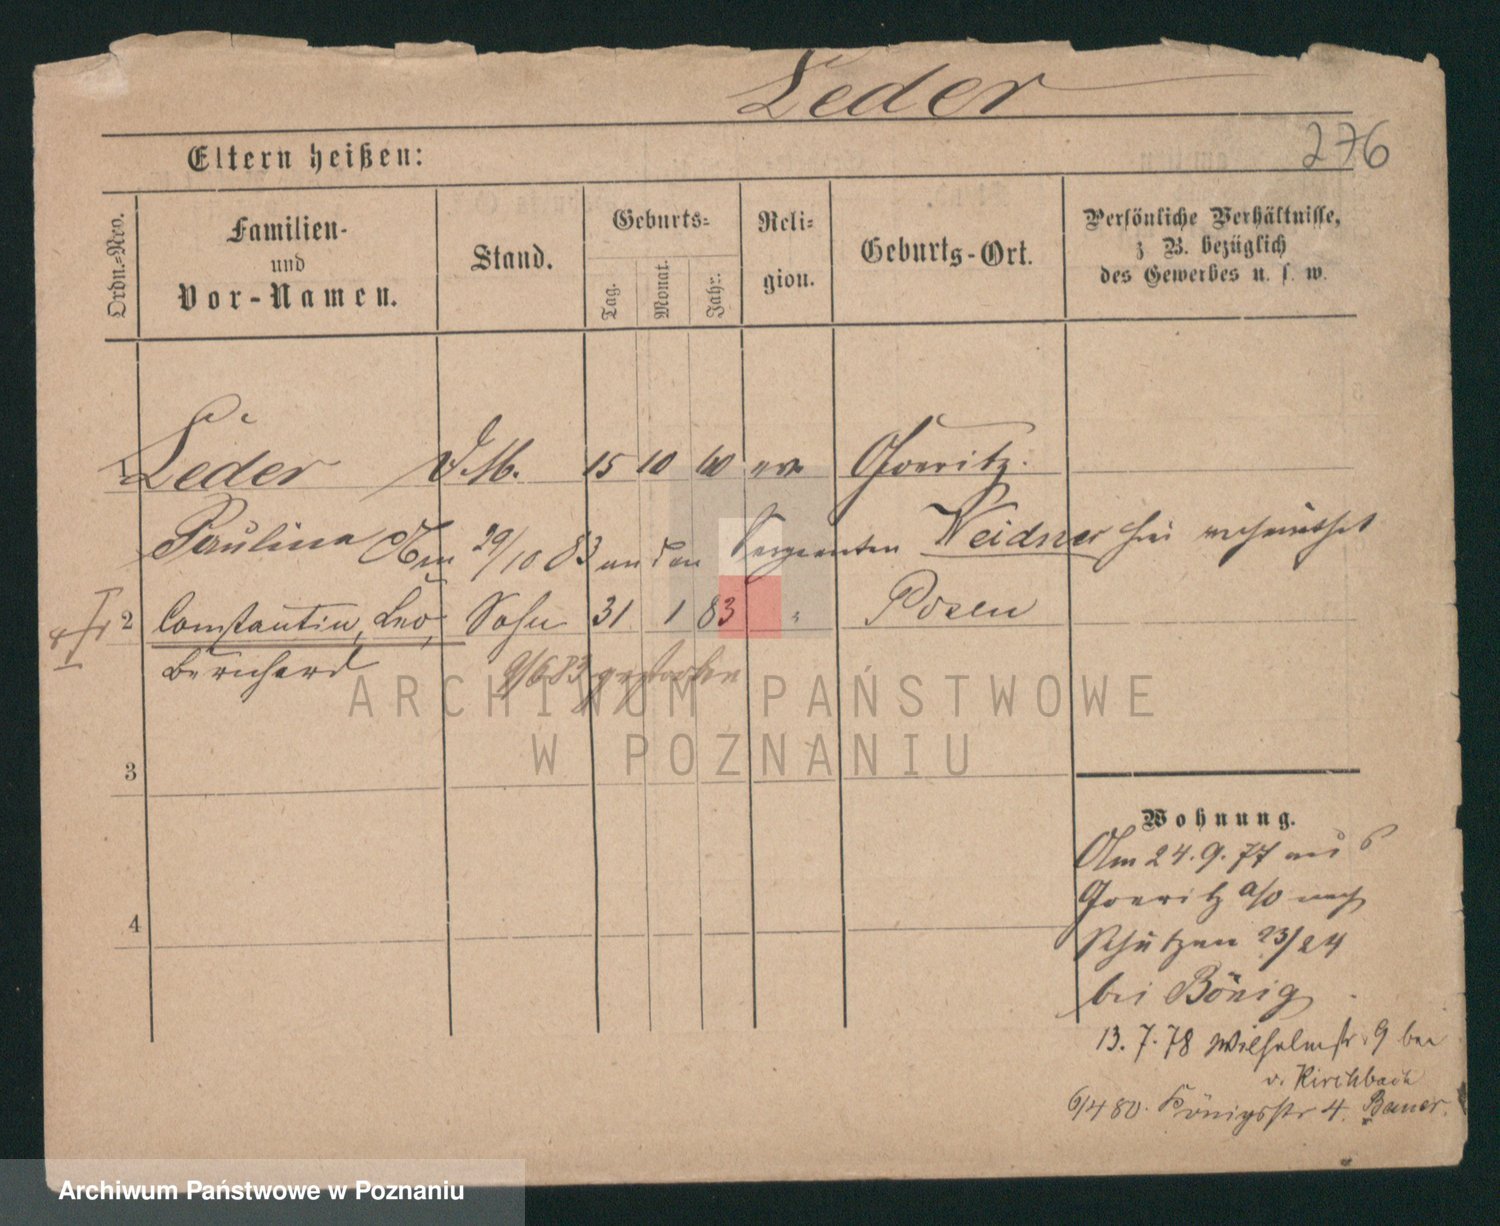 Leder
276
Eltern heißen:
Ordn.-Nro.
Familien-
und
Vor-Namen.
Stand.
Geburts-
Tag.
Monat.
Jahr.
Reli-
gion.
Geburts-Ort.
Persönliche Verhältnisse,
z. B. bezüglich
des Gewerbes u. s. w.
1 Leder D. M. 15 10 60 ev. Goeritz.
Paulina Am 29/10 83 an den Sergeanten Weidner hier verheirathet
2 Constantin, Leo, Sohn 31 1 83 " Posen
Bernhard 9/6 83 gestorben
3
4
Wohnung.
Am 24.9.77 aus
Goeritz a/O nach
Schützen 23/24
bei Bönig
13.7.78 Wilhelmstr. 9 bei
v. Kirchbach
6/4 80. Königsstr 4. Bauer.
ARCHIWUM PAŃSTWOWE
W POZNANIU
Archiwum Państwowe w Poznaniu